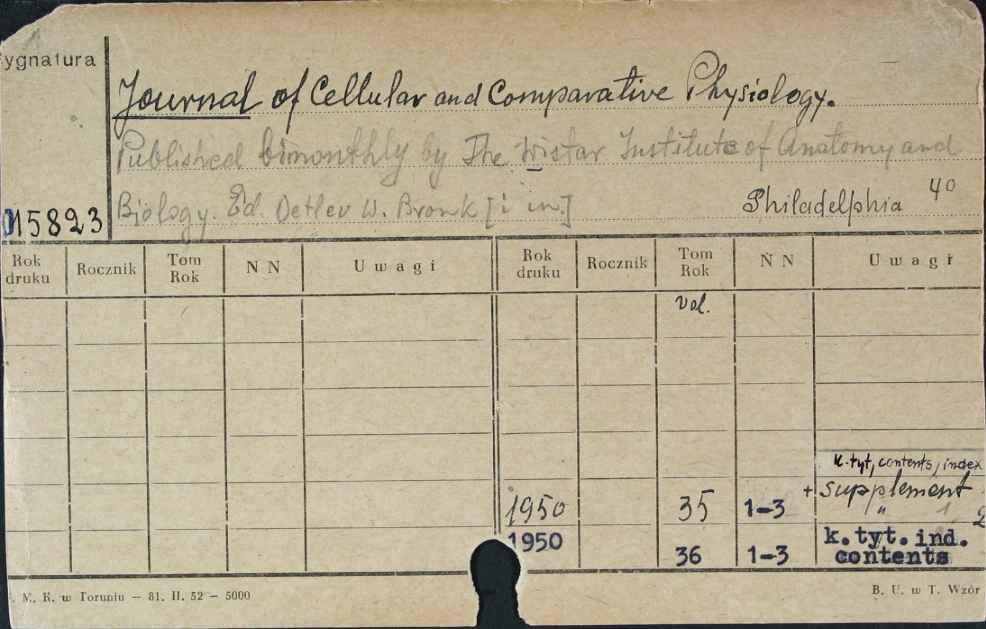 ygnatura
Journal of Cellular and Comparative Physiology.
Published bimonthly by The Wistar Institute of Anatomy and
Biology. Ed. Detlev W. Bronk [i in.] Philadelphia 4o
015823
Rok druku Rocznik Tom Rok N N Uwagi Rok druku Rocznik Tom Rok N N Uwagi
Vol.
k. tyt, contents, index
1950 35 1-3 + supplement 1
" 2
1950 36 1-3 k. tyt. ind.
contents
. M. K. w Toruniu — 81. II. 52 — 5000 B. U. w T. Wzór